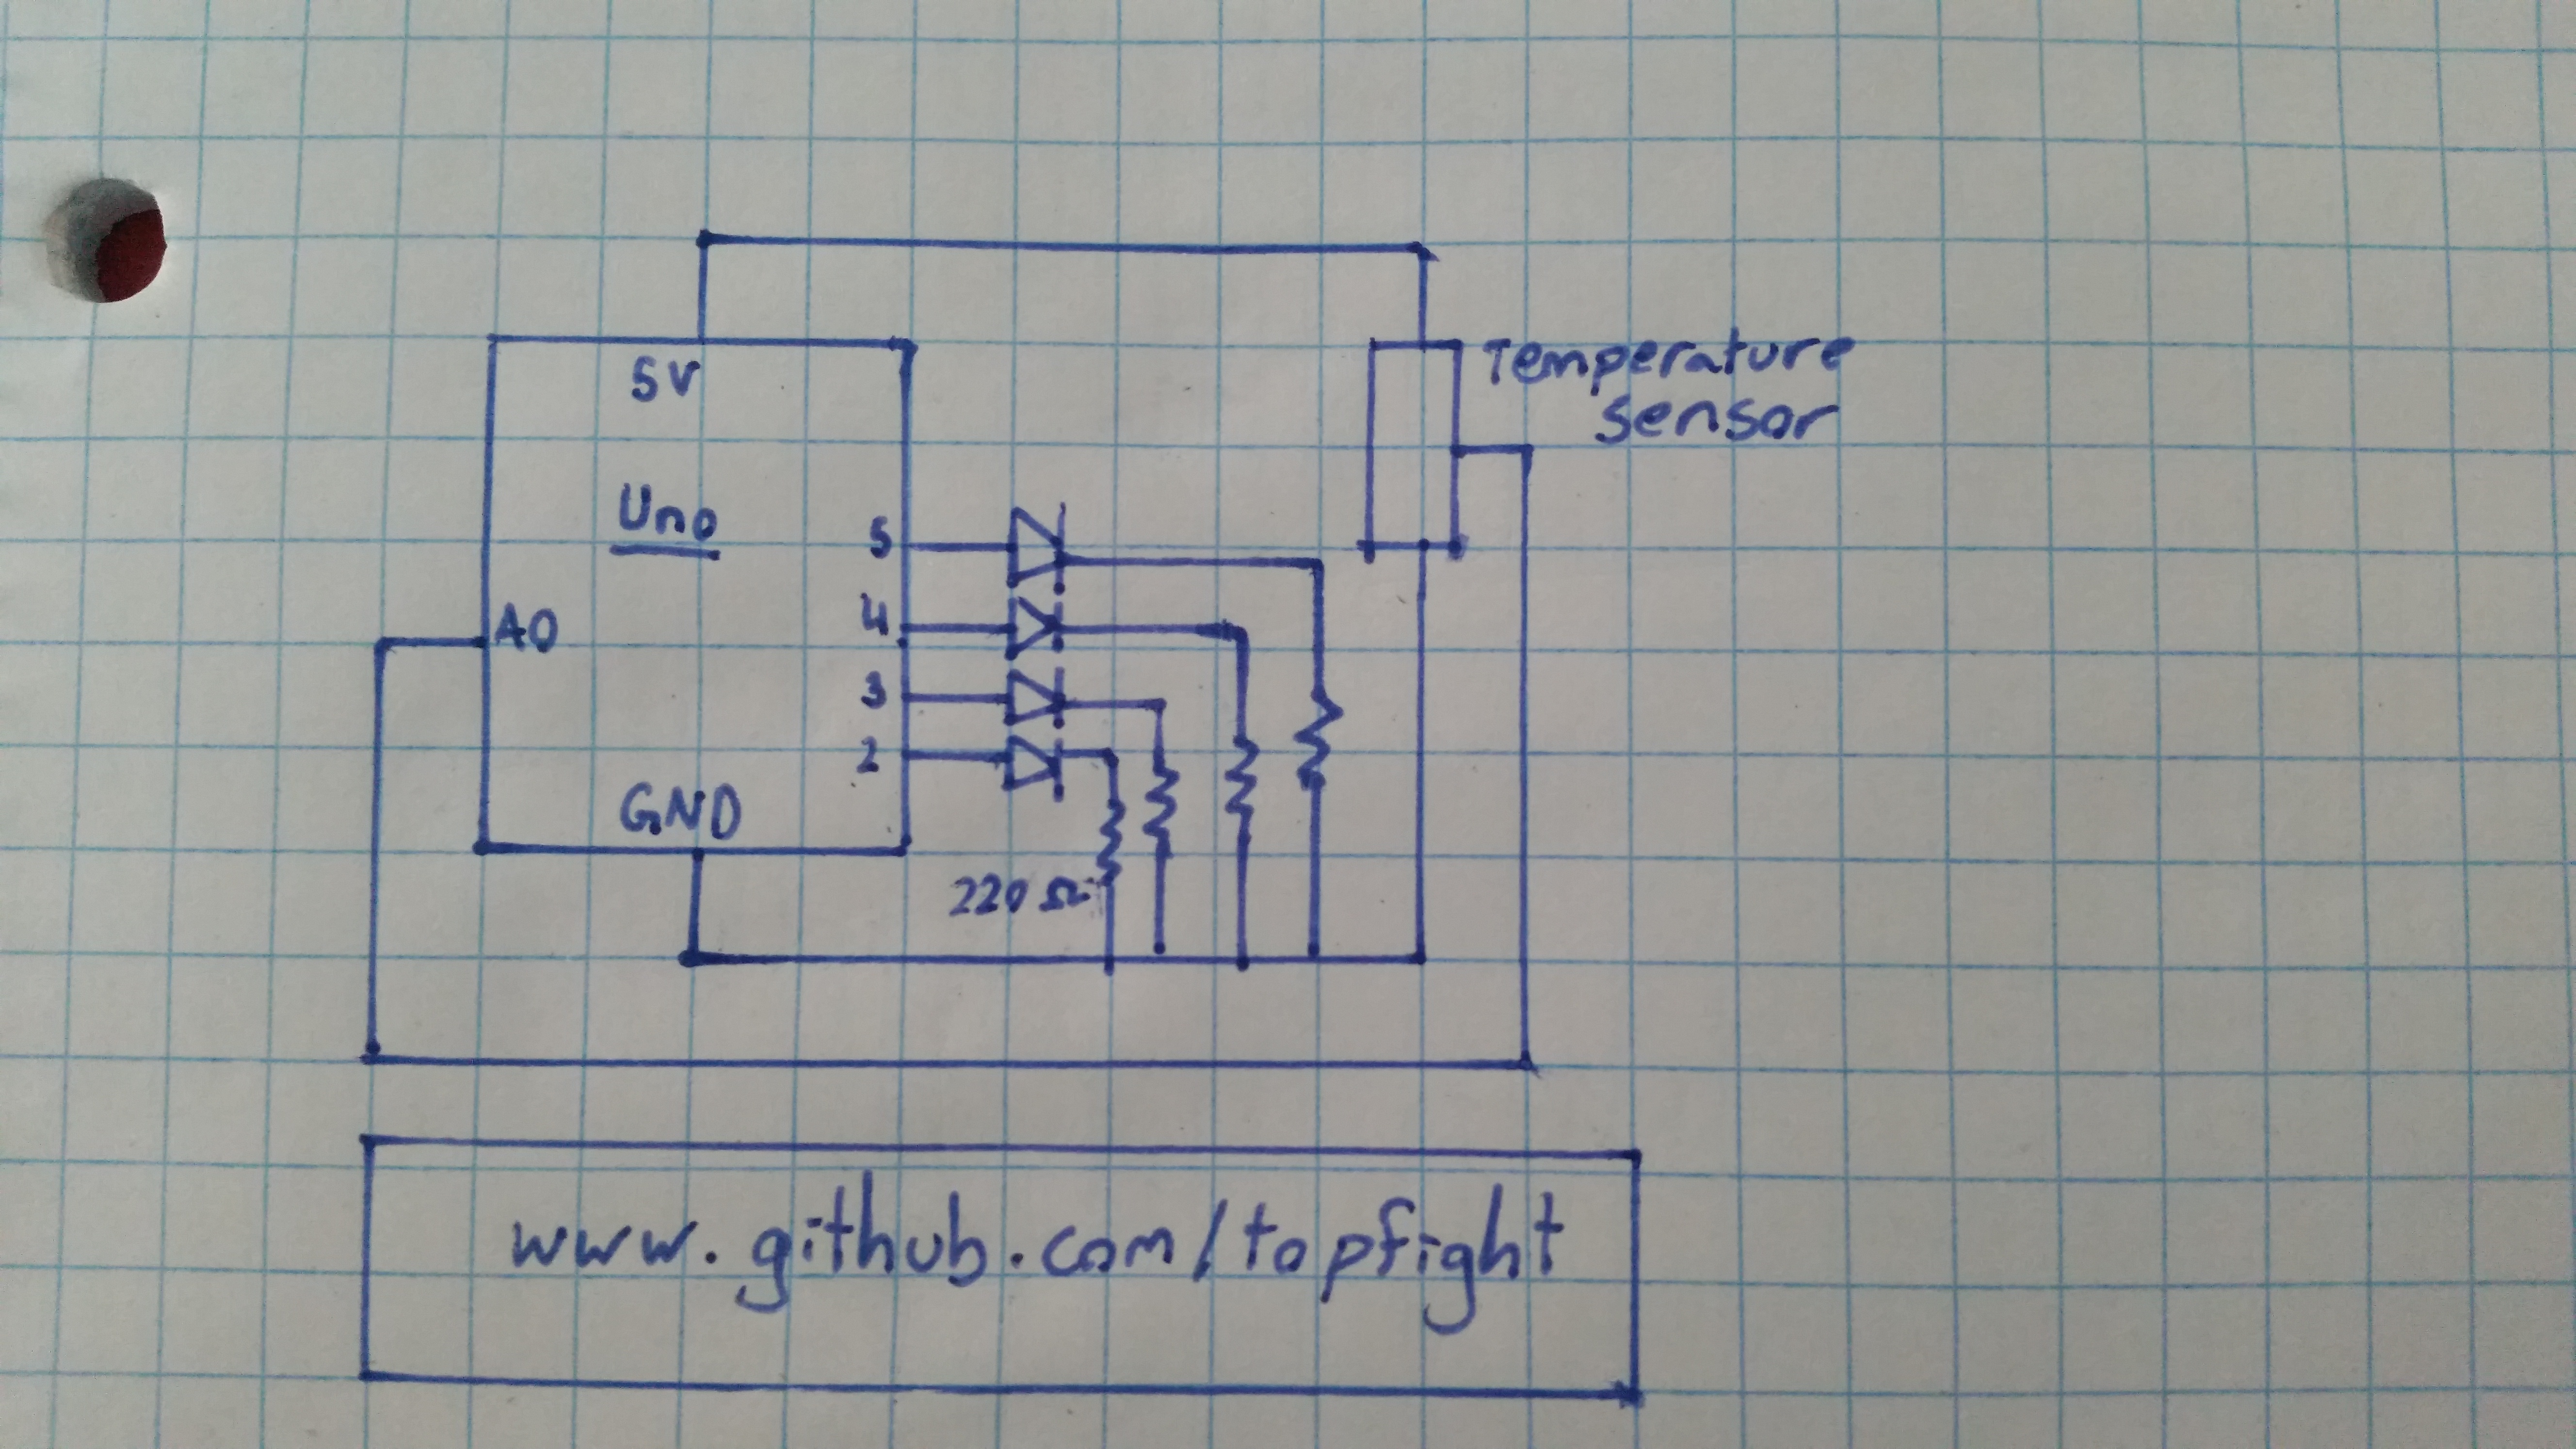 5V
Temperature
sensor
Uno
5
4
A0
3
2
GND
220 Ω
www.github.com/topfight